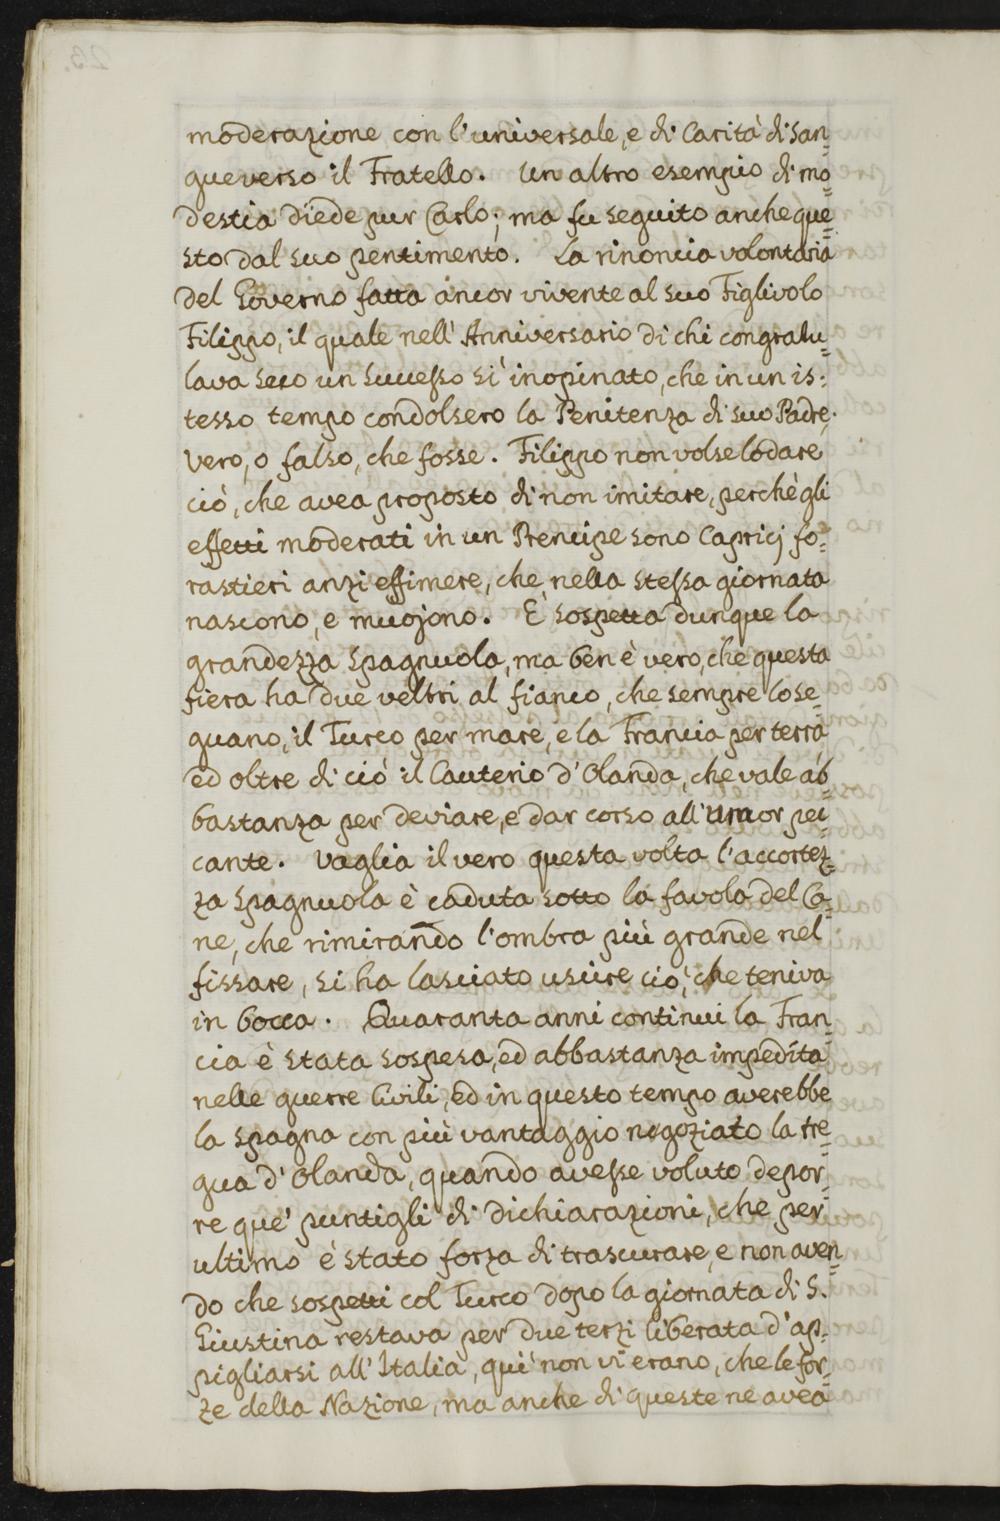 moderazione con l'universale, e di Carità di San=
gue verso il Fratello. Un altro esempio di mo=
destia diede pur Carlo; ma fu seguito anche que=
sto dal suo pentimento. La rinoncia volontaria
del Governo fatta ancor vivente al suo Figlivolo
Filippo, il quale nell' Anniversario di chi congratu=
lava seco un successo sì inopinato, che in un is=
tesso tempo condolsero la Penitenza di suo Padre,
vero, o falso, che fosse. Filippo non volse lodare
ciò, che avea proposto di non imitare, perchè gli
effetti moderati in un Prencipe sono Capricj fo=
rastieri anzi effimere, che nella stessa giornata
nascono, e muojono. È sospetta dunque la
grandezza Spagnuola, ma ben è vero, che questa
fiera ha due veltri al fianco, che sempre lo se=
guano, il Turco per mare, e la Francia per terra,
ed oltre di ciò il Cauterio d'Olanda, che vale ab=
bastanza per deviare, e dar corso all'umor pec=
cante. Vaglia il vero questa volta l'accortez=
za Spagnuola è caduta sotto la favola del Ca=
ne, che rimirando l'ombra più grande nel
fissare, si ha lasciato uscire ciò, che teniva
in bocca. Quaranta anni continui la Fran=
cia è stata sospesa, ed abbastanza impedita
nelle guerre Civili, ed in questo tempo averebbe
la Spagna con più vantaggio negoziato la tre=
gua d'Olanda, quando avesse voluto depor=
re que' puntigli di dichiarazioni, che per
ultimo è stato forza di trascurare, e non aven=
do che sospetti col Turco dopo la giornata di S.
Giustina restava per due terzi liberata d'ap=
pigliarsi all'Italia, quì non vi erano, che le for=
ze della Nazione, ma anche di queste ne avea